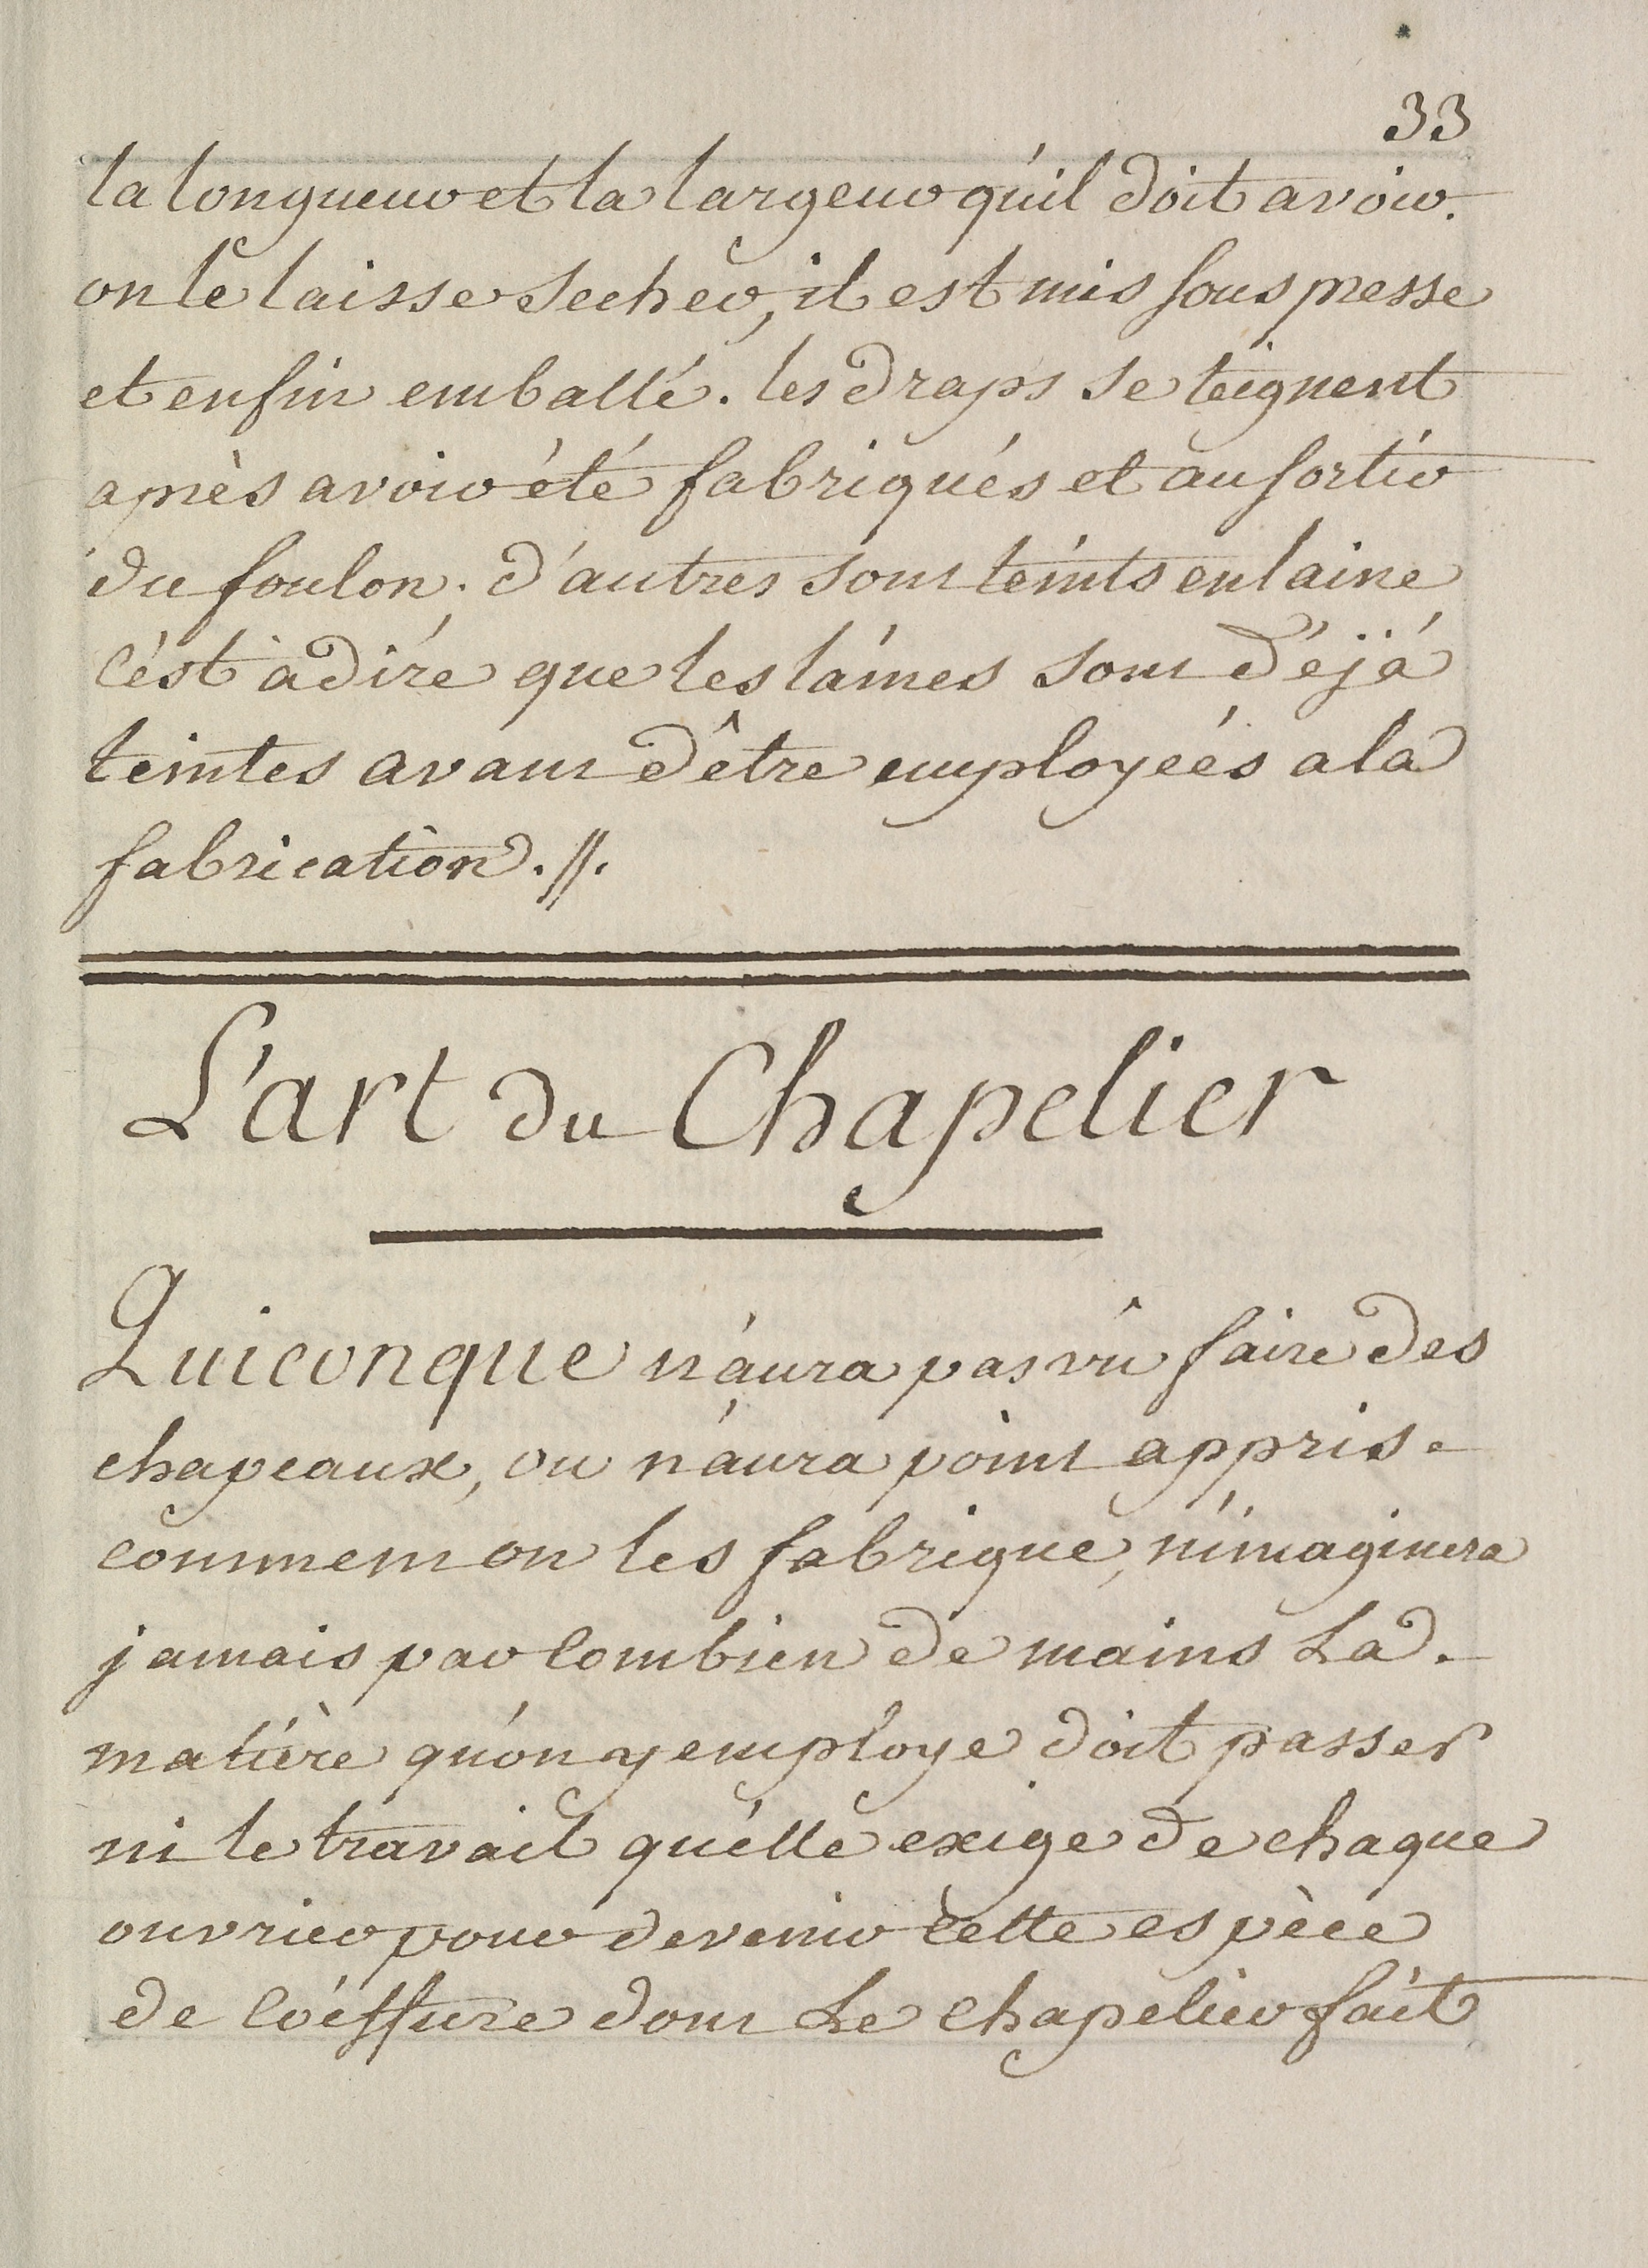 33
la longueur et la largeur qu'il doit avoir.
on le laisse secher, il est mis sous presse
et enfin emballé. les draps se teignent
après avoir été fabriqués et au sortir
du foulon; d'autres sont teints en laine
c'est à dire que les laines sont déjà
teintes avant d'être employées a la
fabrication.//.
L'art du Chapelier
Quiconque n'aura pas vû faire des
chapeaux, ou n'aura point appris
comment on les fabrique, n'imaginera
jamais par combien de mains La
matière qu'on y employe doit passer
ni le travail qu'elle exige de chaque
ouvrier pour devenir cette espèce
de coëffure dont Le chapelier fait